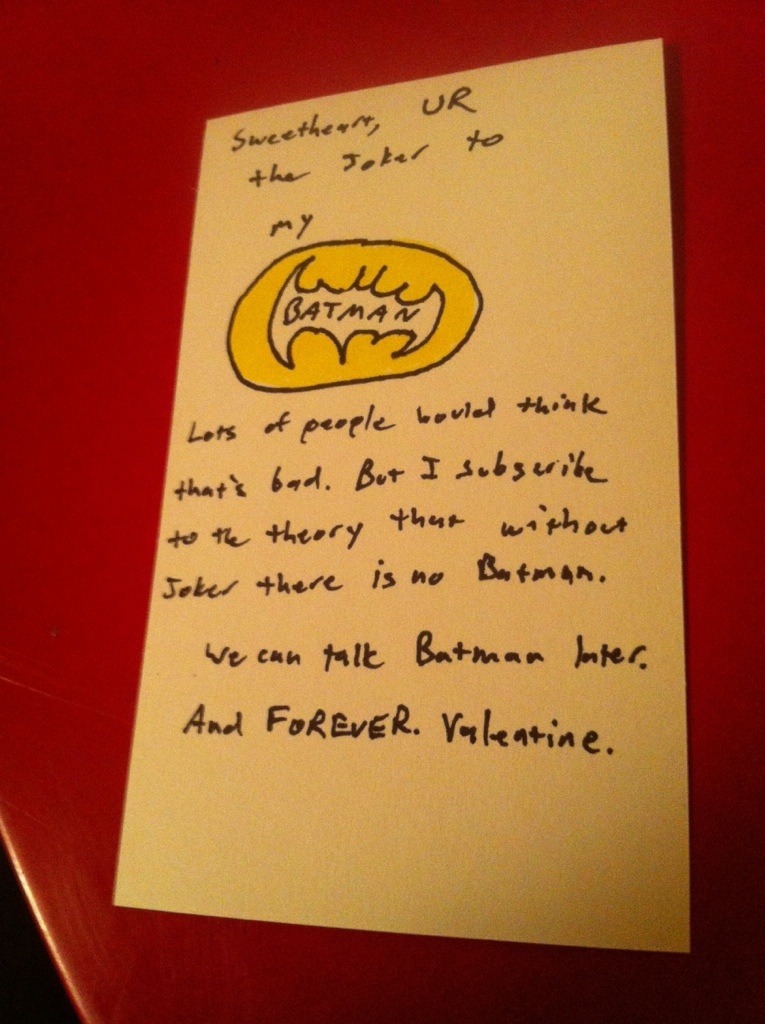 Sweetheart, UR
the Joker to
my
BATMAN
Lots of people would think
that's bad. But I subscribe
to the theory that without
Joker there is no Batman.
We can talk Batman later.
And FOREVER. Valentine.